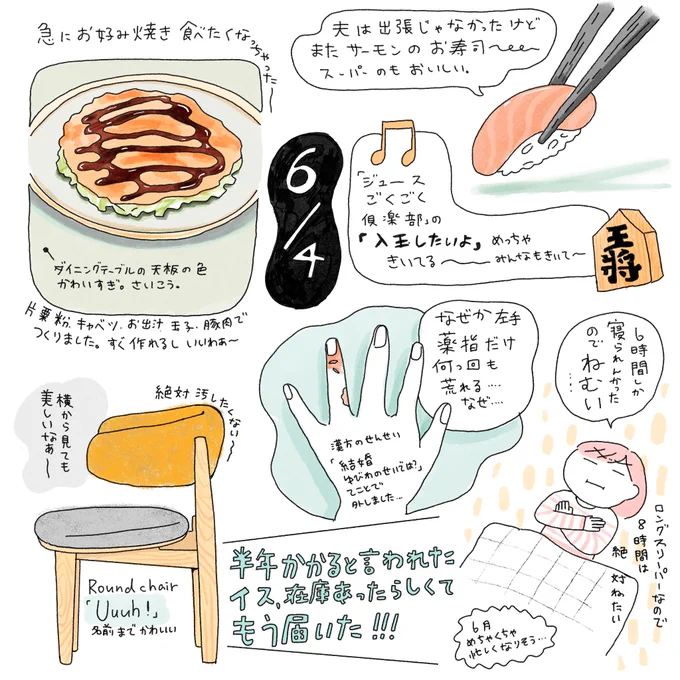 急にお好み焼き食べたくなっちゃった〜
夫は出張じゃなかったけど
またサーモンのお寿司〜
スーパーのもおいしい。
6/4
「ジュース
ごくごく
倶楽部」の
「入王したいよ」めっちゃ
きいてる〜みんなもきいて〜
王将
ダイニングテーブルの天板の色
かわいすぎ。さいこう。
片栗粉、キャベツ、お出汁、玉子、豚肉で
つくりました。すぐ作れるし いいわぁ〜
なぜか左手
薬指だけ
何回も
荒れる....
なぜ....
漢方のせんせい
「結婚
ゆびわのせいでは?」
てことで
外しました...
6時間しか
寝られんかった
のでねむい
......
ロングスリーパーなので
8時間は
絶対ねたい
6月
めちゃくちゃ
忙しくなりそう...
横から見ても
美しいなぁ〜
絶対汚したくない〜
Round chair
「Uuuh!」
名前までかわいい
半年かかると言われた
イス、在庫あったらしくて
もう届いた!!!